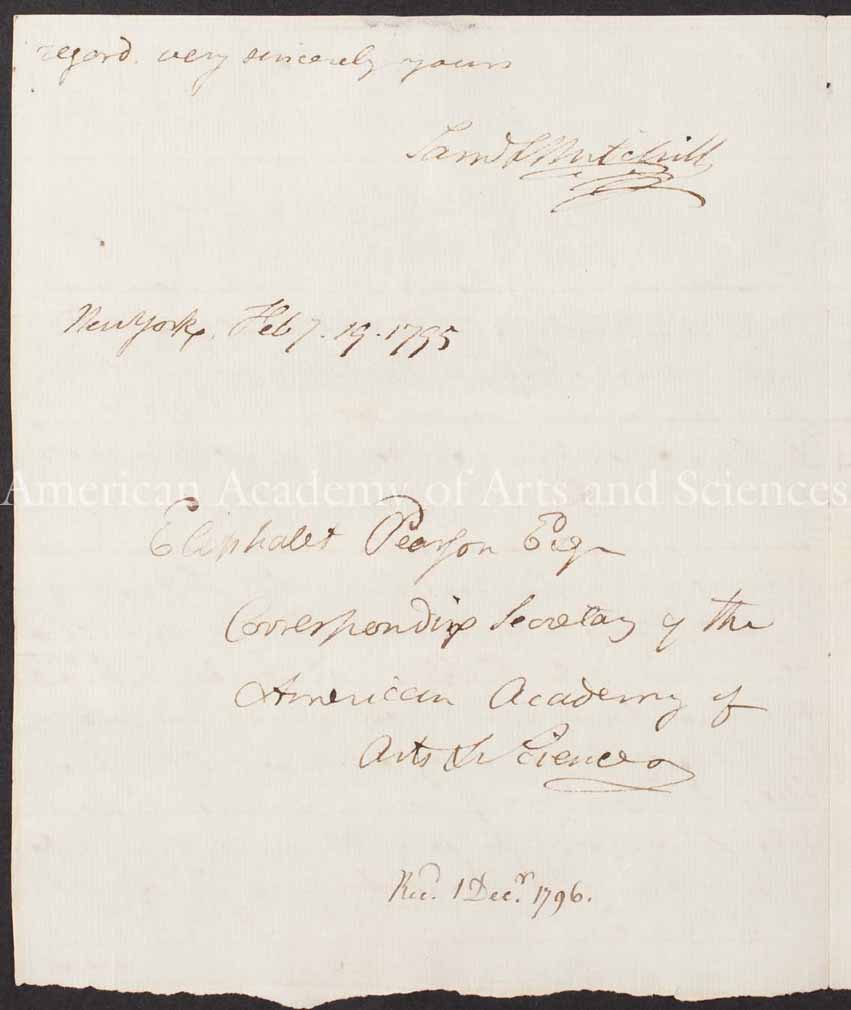 regard. very sincerely yours
Saml L Mitchill
NewYork, Feby. 19. 1795
American Academy of Arts and Sciences
Eliphalet Pearson Esqr
Corresponding Secretary of the
American Academy of
Arts & Sciences
Recd. 1 Decr. 1796.